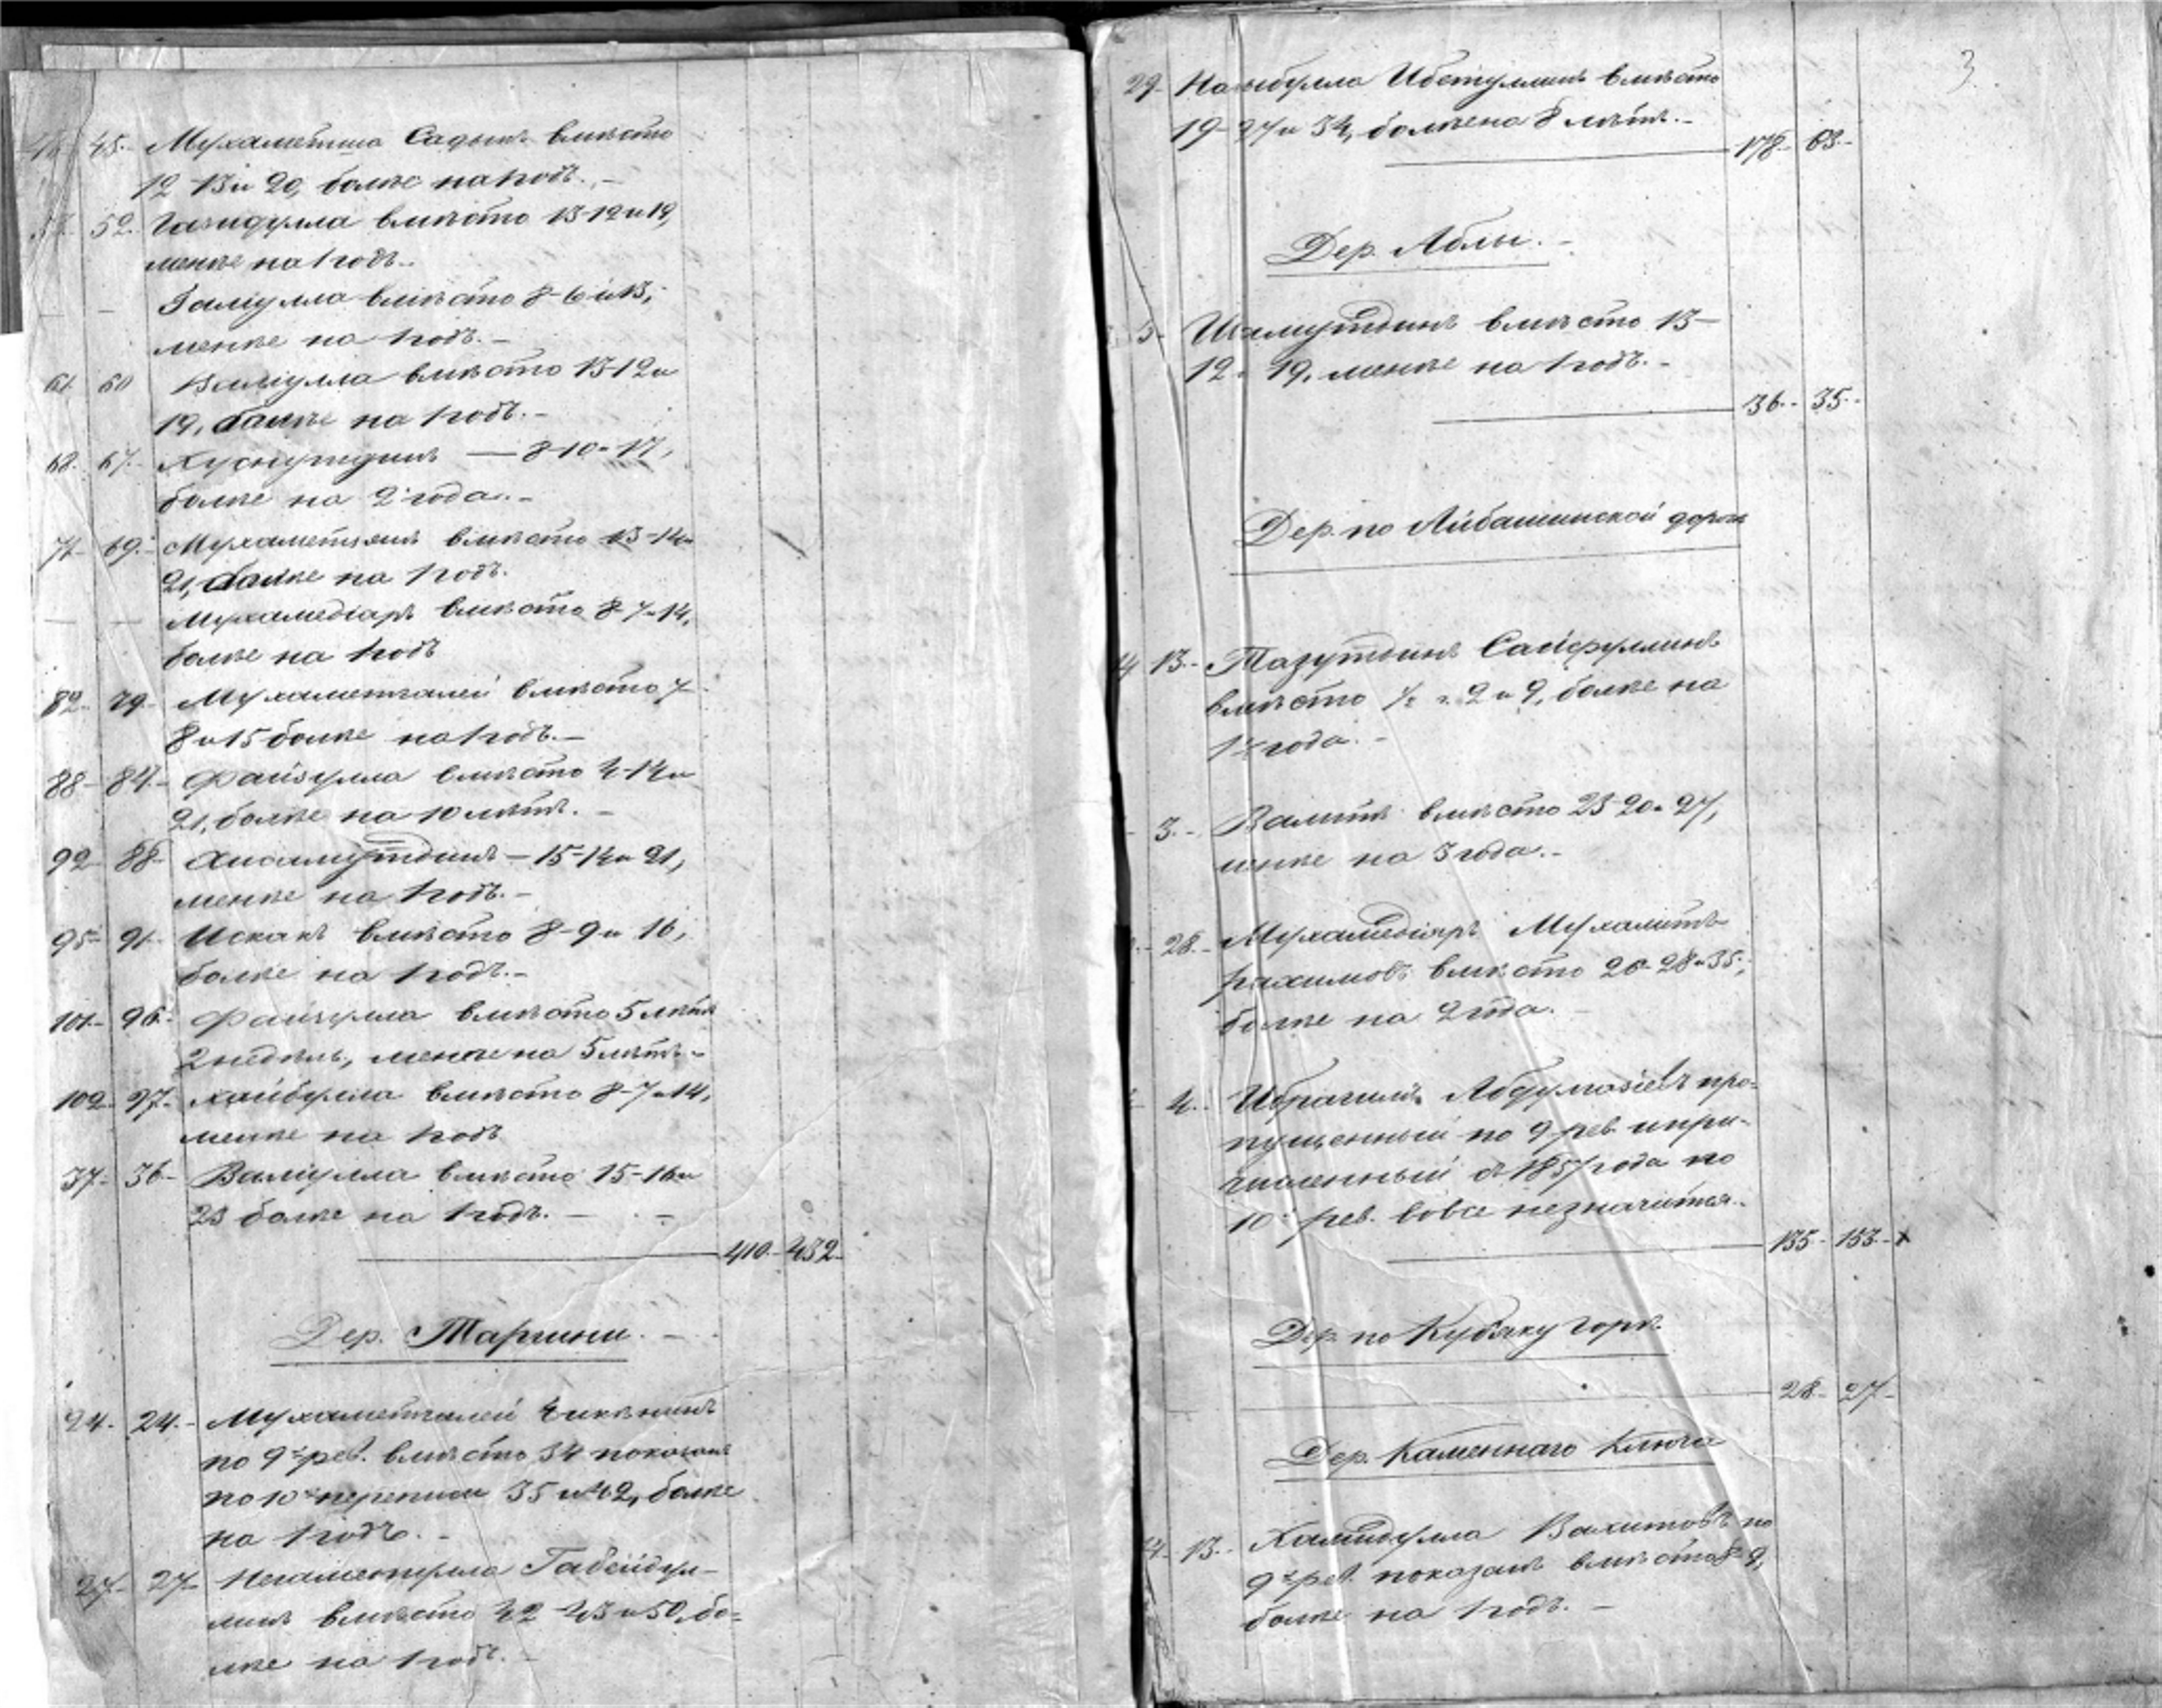 45. Мухаметша Садыкъ вмѣсто
12-13 и 20, болѣе на 1 годъ. -
52. Газидулла вмѣсто 13-12 и 19,
менѣе на 1 годъ. -
Галіулла вмѣсто 8-6 и 13,
менѣе на 1 годъ. -
61. 60 Валіулла вмѣсто 13-12 и
19, болѣе на 1 годъ. -
68. 67. Хуснутдинъ — 8-10 и 17,
болѣе на 2 года. -
71- 69.- Мухаметзянъ вмѣсто 13-14 и
21, болѣе на 1 годъ.
— — Мухамедіаръ вмѣсто 8-7 и 14,
болѣе на 1 годъ
82- 79- Мухаметгалей вмѣсто 7-
8 и 15 болѣе на 1 годъ. -
88- 84- Файзулла вмѣсто 4-14 и
21, болѣе на 10 лѣтъ. -
92- 88- — 15-14 и 21,
менѣе на 1 годъ. -
95- 91- Искакъ вмѣсто 8-9 и 16,
болѣе на 1 годъ. -
101- 96- Файзулла вмѣсто 5 лѣтъ
2 недѣль, менѣе на 5 лѣтъ -
102- 97- Хайбулла вмѣсто 8-7 и 14,
менѣе на 1 годъ
37- 36- Валіулла вмѣсто 15-16 и
23 болѣе на 1 годъ. -
410- 432-
Дер. -
24- 24.- Мухаметгалей
по 9й рев. вмѣсто 34 показанъ
по 10й переписи 35 и 42, болѣе
на 1 годъ. -
27- 27- Нигаметулла Габейдул-
линъ вмѣсто 42-43 и 50, бо-
лѣе на 1 годъ. -
3
29- вмѣсто
19-27 и 34, болѣе на 8 лѣтъ. -
178- 63-
Дер. Аблы. -
5- вмѣсто 13-
12 и 19, менѣе на 1 годъ. -
36- 35-
Дер. по Айбашинской дорогѣ
13- Тазутдинъ Сайфуллинъ
вмѣсто ½ г. 2 и 9, болѣе на
1½ года. -
3.- Валитъ вмѣсто 23-20 и 27,
менѣе на 3 года. -
28.- Мухамедіяръ Мухамет-
рахимовъ вмѣсто 26-28 и 35,
болѣе на 2 года. -
4. Ибрагимъ про-
пущенный по 9 рев. и при-
численный съ 1857 года по
10й рев. вовсе незначится. -
135- 153-
Дер. по Кубяку горѣ.
28- 27-
Дер. Каменнаго Ключа
13.- Хамидулла Вахитовъ по
9й рев. показанъ вмѣсто 8-9,
болѣе на 1 годъ. -